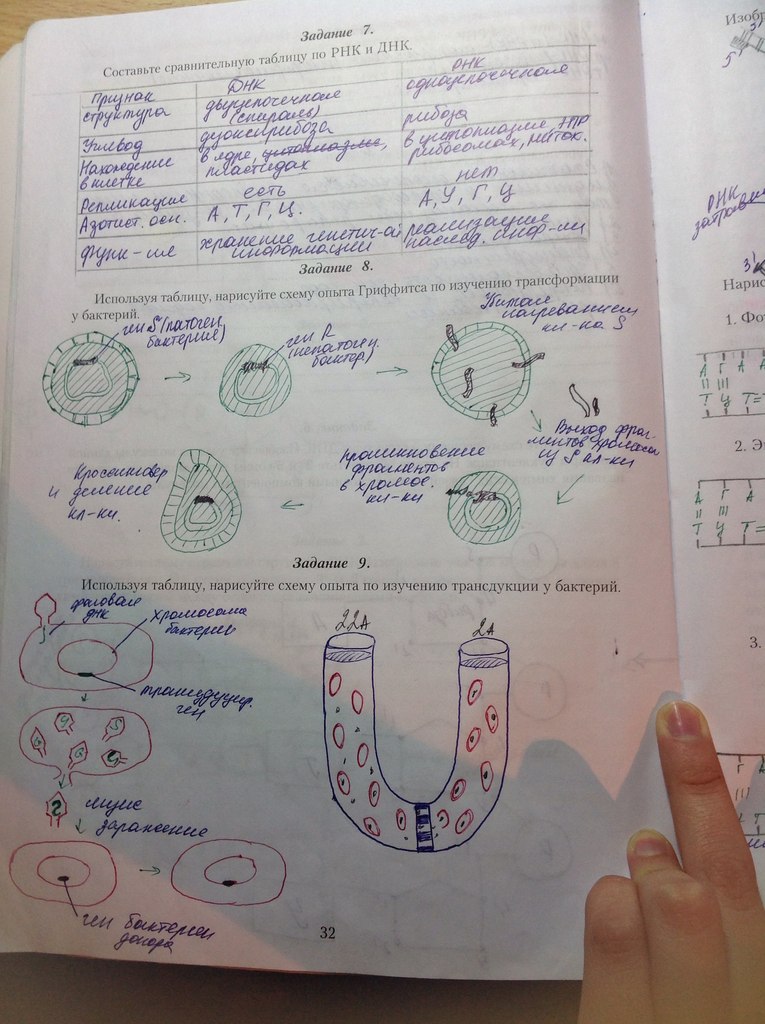 Задание 7.
Составьте сравнительную таблицу по РНК и ДНК.
Признак ДНК РНК
структура двуцепочечная (спираль) одноцепочечная
Углевод дуоксирибоза рибоза
Нахождение в клетке в ядре, цитоплазме, пластидах в цитоплазме, ЭПР рибосомах, миток.
Репликация есть нет
Азотист. осн. А, Т, Г, Ц. А, У, Г, Ц
Функ-ия хранение генетич-ой информации реализация наслед. инф-ии
Задание 8.
Используя таблицу, нарисуйте схему опыта Гриффитса по изучению трансформации
у бактерий.
ген S (патоген.
бактерии)
ген R
(непатоген.
бактер)
Убитая
нагреванием
кл-ка S
Выход фраг-
ментов хромосом
из S кл-ки
проникновение
фрагментов
в хромос.
кл-ки
Кроссинговер
и деление
кл-ки.
Задание 9.
Используя таблицу, нарисуйте схему опыта по изучению трансдукции у бактерий.
фаговая
ДНК
хромосома
бактерии
трансдуцир.
ген
22А
2А
лизис
заражение
ген бактерии
донора
32
Изобр
3'
5'
РНК
затравка
3'
Нарис
1. Фо
А Г А А
Т Ц Т=
2. Э
А Г А
Т Ц Т=
3.
Г А